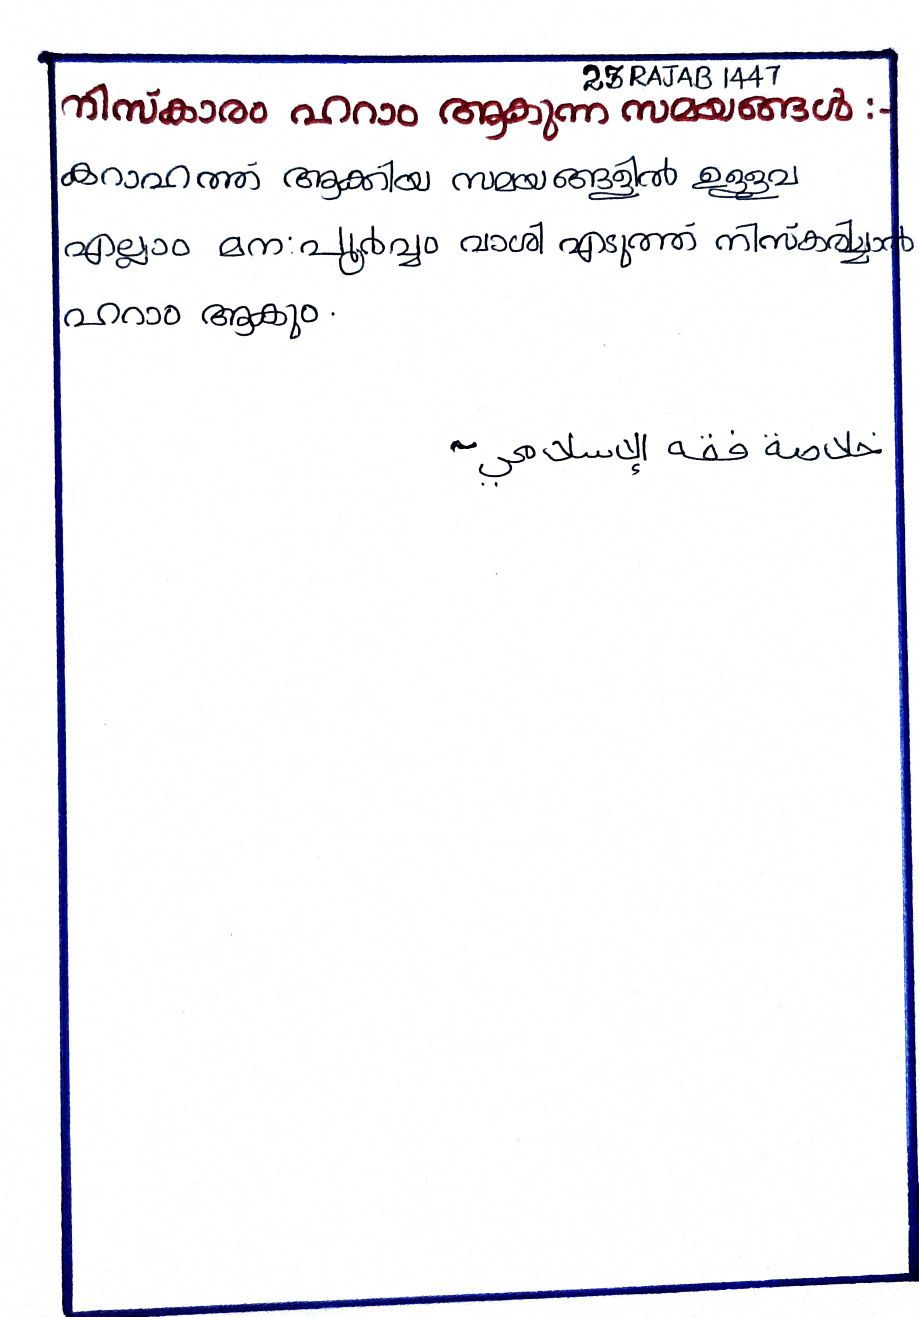 28 RAJAB 1447
നിസ്കാരം ഹറാം ആകുന്ന സമയങ്ങൾ :-
കറാഹത്ത് ആക്കിയ സമയങ്ങളിൽ ഉള്ളവ
എല്ലാം മന:പൂർവ്വം വാശി എടുത്ത് നിസ്കരിച്ചാൽ
ഹറാം ആകും.
خلاصة فقه الإسلامي ~